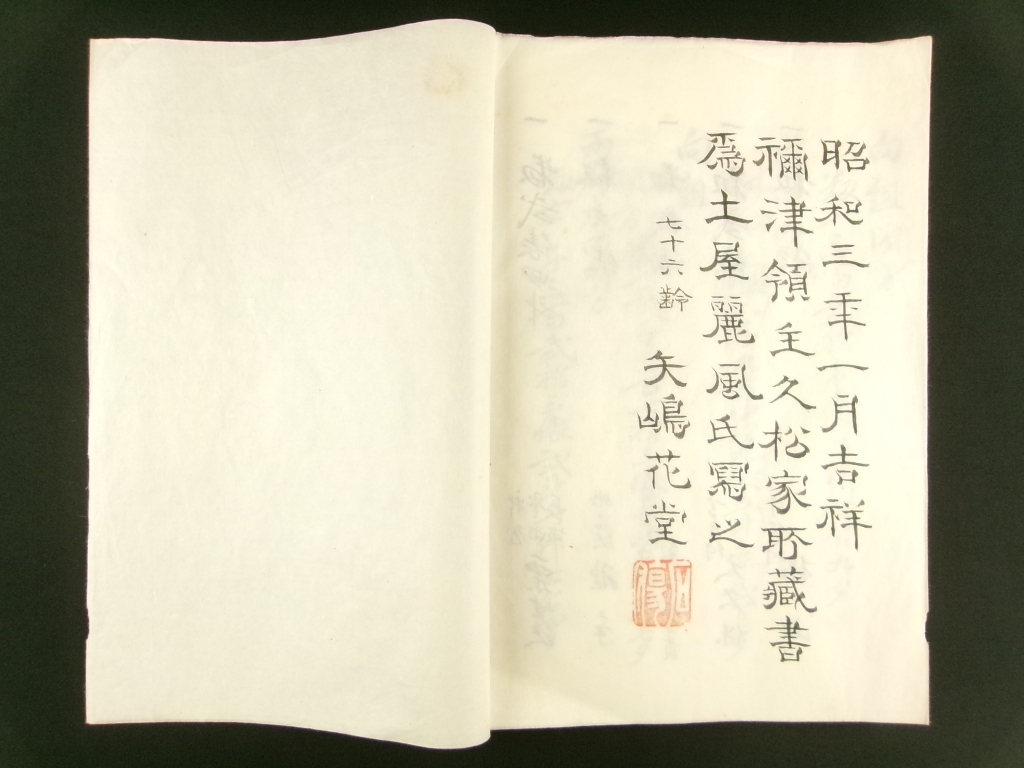 昭和三年一月吉祥
禰津領主久松家所藏書
爲土屋麗風氏寫之
七十六齡
矢嶋花堂